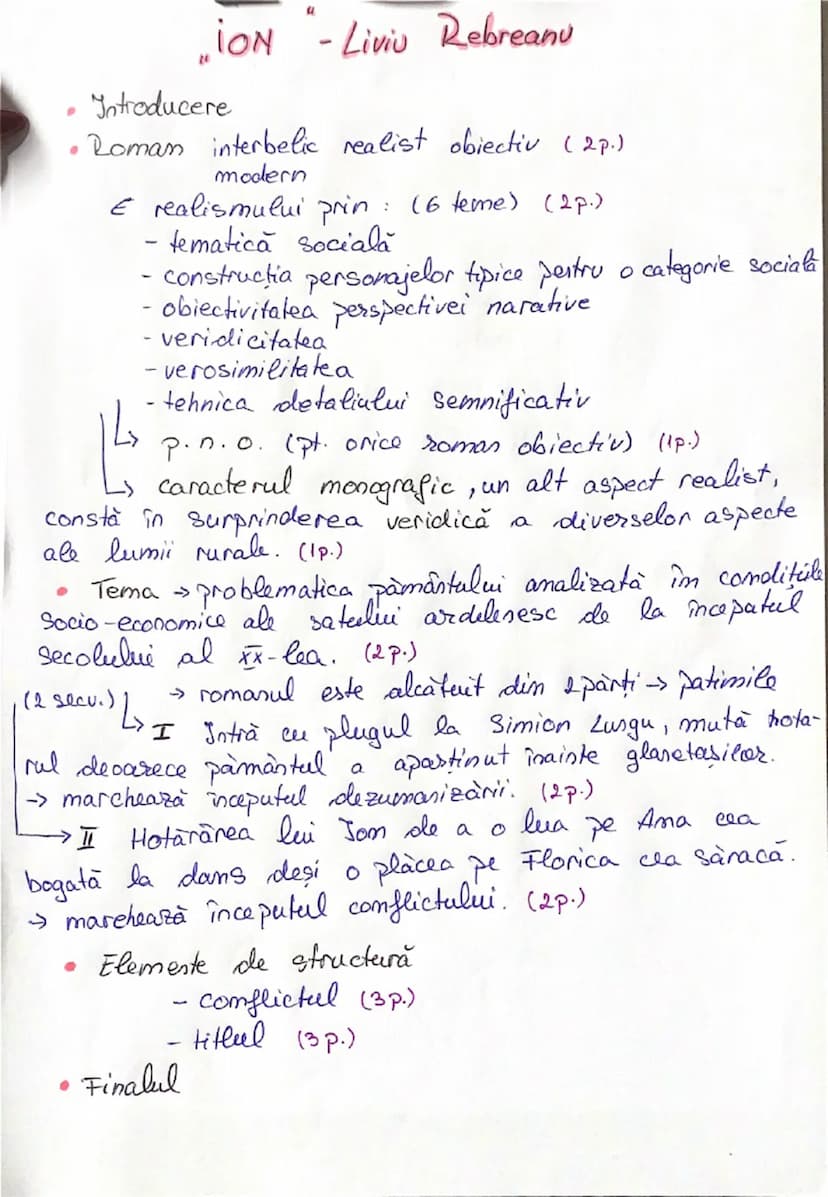 „ION" - Liviu Rebreanu
• Introducere
• Roman interbelic realist obiectiv (2p.)
modern
∈ realismului prin : (6 teme) (2p.)
- tematică socială
- construcția personajelor tipice pentru o categorie socială
- obiectivitatea perspectivei narative
- veridicitatea
- verosimilitatea
- tehnica detaliului semnificativ
↳ p.n.o. (pt. orice roman obiectiv) (1p.)
↳ caracterul monografic, un alt aspect realist,
constă în surprinderea veridică a diverselor aspecte
ale lumii rurale. (1p.)
• Tema → problematica pământului analizată în condițiile
socio-economice ale satului ardelenesc de la începutul
secolului al XX-lea. (2p.)
(2 secv.) → romanul este alcătuit din 2 părți → patimile
↳ I Intră cu plugul la Simion Lungu, mută hota-
rul deoarece pământul a aparținut înainte glanetașilor.
→ marchează începutul dezumanizării. (2p.)
→ II Hotărârea lui Ion de a o lua pe Ana cea
bogată la dans deși o plăcea pe Florica cea săracă.
→ marchează începutul conflictului. (2p.)
• Elemente de structură
- conflictul (3p.)
- titlul (3p.)
• Finalul